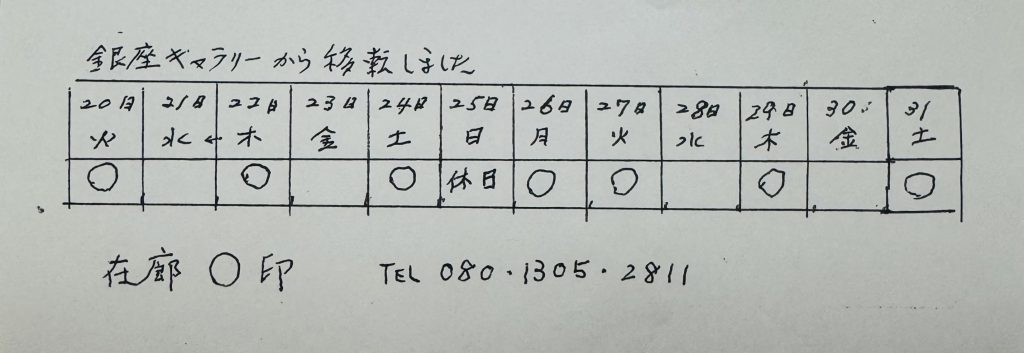 銀座ギャラリーから移転しました
20日 21日 22日 23日 24日 25日 26日 27日 28日 29日 30日 31
火 水 ← 木 金 土 日 月 火 水 木 金 土
○ ○ ○ 休日 ○ ○ ○ ○
在廊 ○ 印 TEL 080・1305・2811